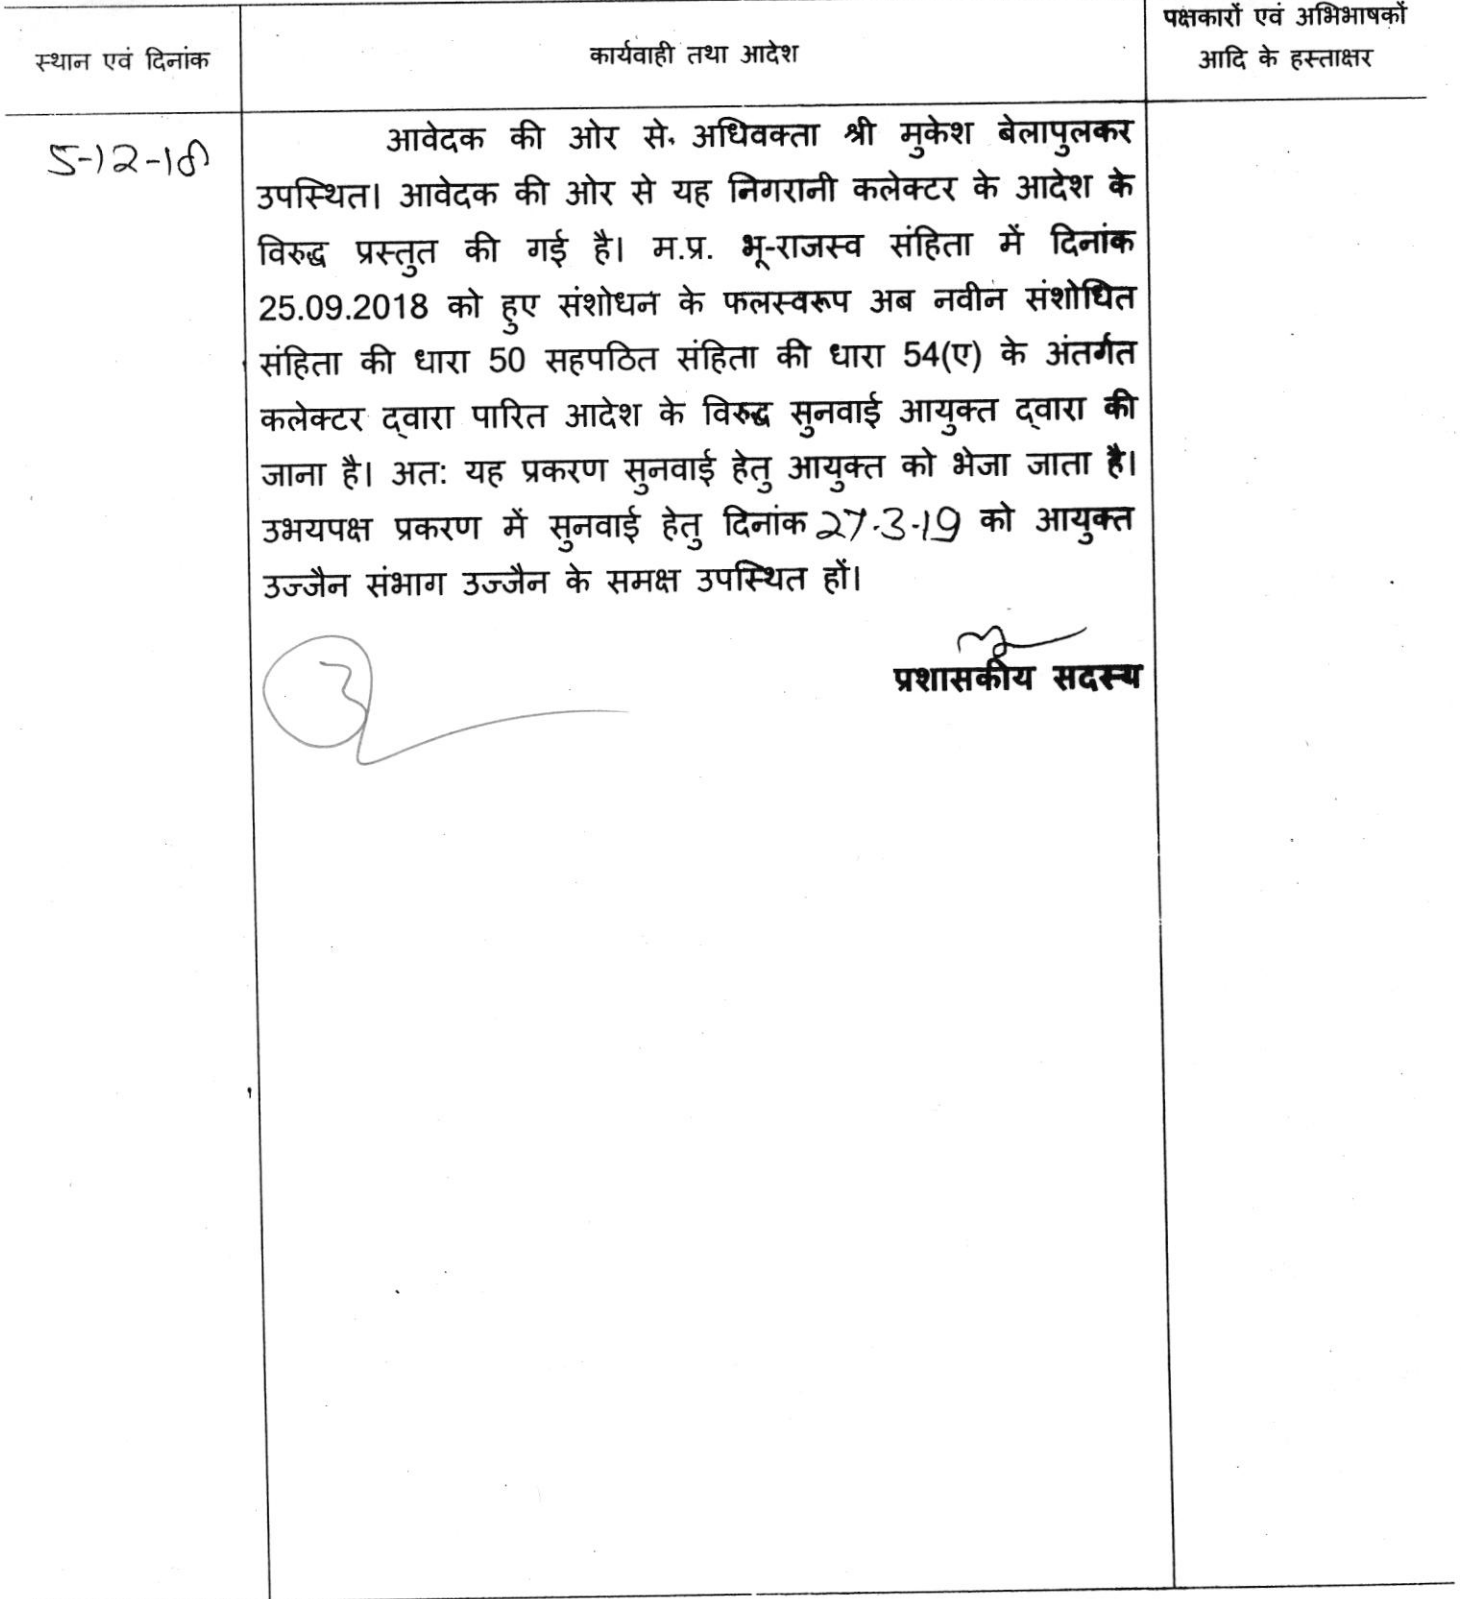 स्थान एवं दिनांक
कार्यवाही तथा आदेश
पक्षकारों एवं अभिभाषकों
आदि के हस्ताक्षर
5-12-18
आवेदक की ओर से अधिवक्ता श्री मुकेश बेलापुलकर
उपस्थित। आवेदक की ओर से यह निगरानी कलेक्टर के आदेश के
विरुद्ध प्रस्तुत की गई है। म.प्र. भू-राजस्व संहिता में दिनांक
25.09.2018 को हुए संशोधन के फलस्वरूप अब नवीन संशोधित
संहिता की धारा 50 सहपठित संहिता की धारा 54(ए) के अंतर्गत
कलेक्टर द्वारा पारित आदेश के विरुद्ध सुनवाई आयुक्त द्वारा की
जाना है। अत: यह प्रकरण सुनवाई हेतु आयुक्त को भेजा जाता है।
उभयपक्ष प्रकरण में सुनवाई हेतु दिनांक 27.3.19 को आयुक्त
उज्जैन संभाग उज्जैन के समक्ष उपस्थित हों।
प्रशासकीय सदस्य